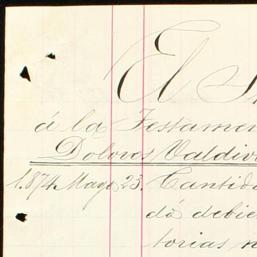 El S
á la Testamen
Dolores Valdiv
1.874 Mayo 23. Cantid
dó debie
torias n